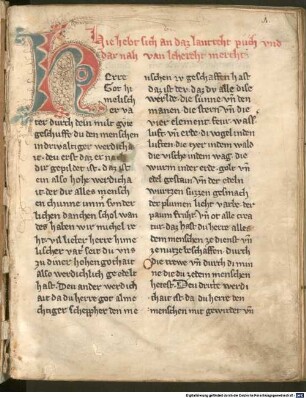 Hie hebt sich an daz lantrecht puch vnd
dar nah van lehenrecht merchet
Herre
Got hi
melisch
er va
ter durch dein milt gute
geschuffe du den menschen
in drivaltiger werdicheit
it. deu erst daz er nach
dir gepildet ist. daz ist
ein also hohe werdicha
it der dir alles mensch
en chunne imm sunder
lichen danchen schol wan
des haben wir michel re
ht vil lieber herre hime
lischer vater seit du vns
zu diner hohen gothait
also werdichlich geedelt
hast. Deu ander werdich
ait da du herre got alme
chtiger schepher den me
nschen zv geschaffen hast
daz ist der daz du alle dise
werlde die sunne vnd den
manen die stern vnd die
vier element feur wasser
luft vnd erde di vogel in den
luften die tyer in dem wald
die vische in dem wag. die
wurm in der erde golt vnd
edel gestain vnd der edeln
wurzen suzzen gesmach
der plumen licht varbe der
paum fruht vnd ot alle crea
tur. daz hast du herre alles
dem menschen ze dienst vnd
ze nutze beschaffen durch
die trewe vnd durch di min
ne die du ze dem menschen
hetest. Deu dritte werdi
chait ist daz du herre den
menschen mit gewirdet vnd